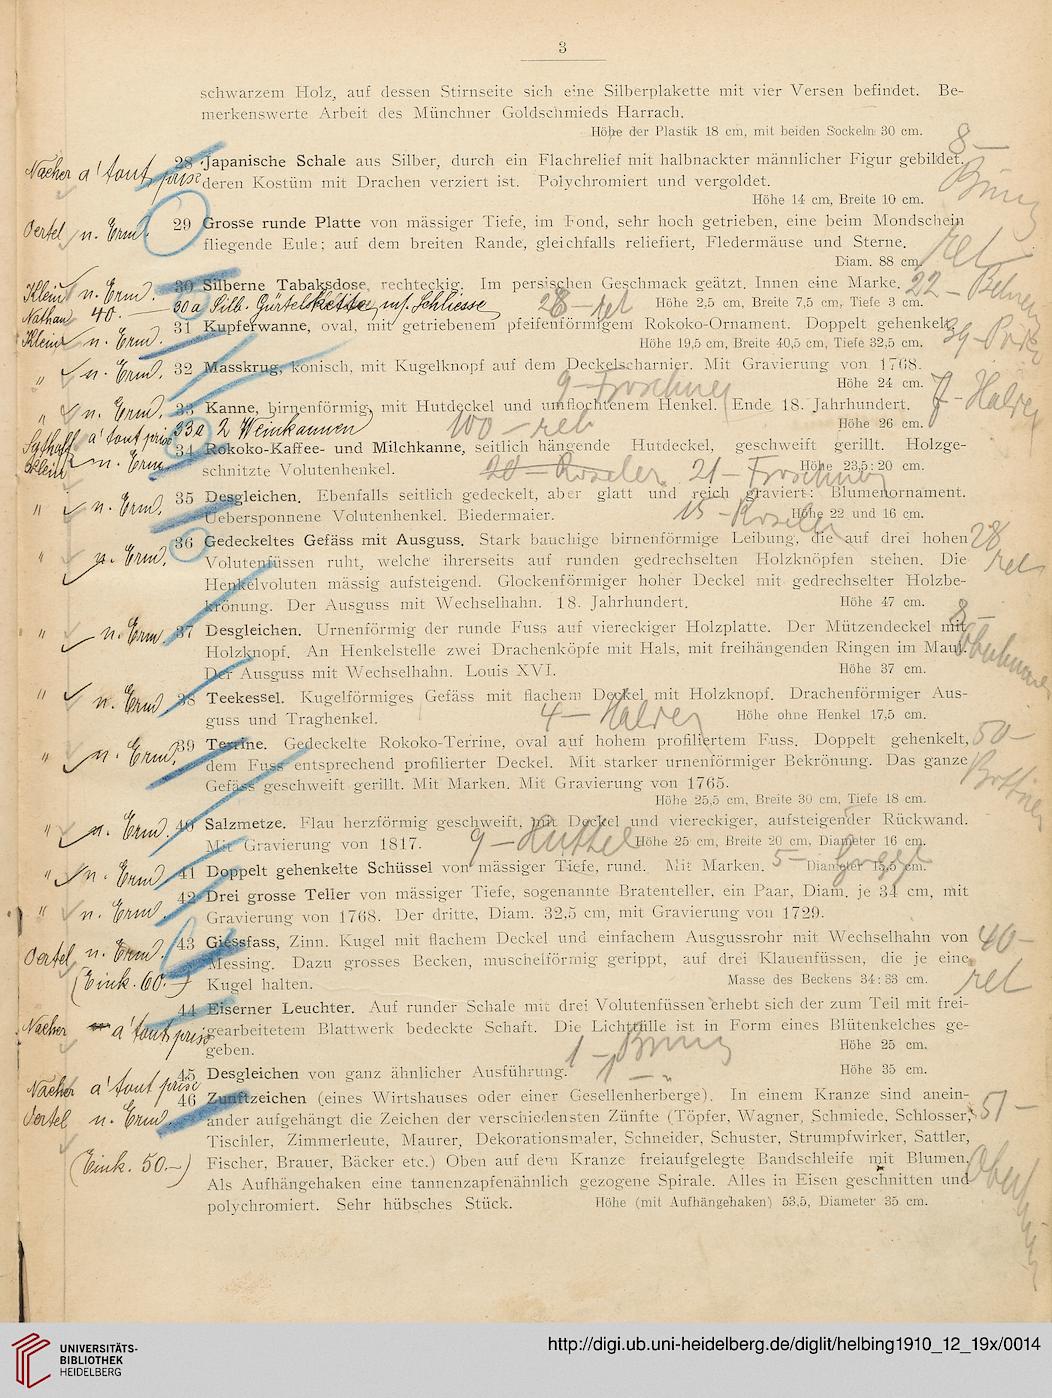 3
schwarzem Holz, auf dessen Stirnseite sich eine Silberplakette mit vier Versen befindet. Be-
merkenswerte Arbeit des Münchner Goldschmieds Harrach.
Höhe der Plastik 18 cm, mit beiden Sockeln 30 cm.
8 —
Nacher a' tout prise
28 Japanische Schale aus Silber, durch ein Flachrelief mit halbnackter männlicher Figur gebildet,
deren Kostüm mit Drachen verziert ist. Polychromiert und vergoldet.
Höhe 14 cm, Breite 10 cm.
Oertel n. Erm.
29 Grosse runde Platte von mässiger Tiefe, im Fond, sehr hoch getrieben, eine beim Mondschein
fliegende Eule; auf dem breiten Rande, gleichfalls reliefiert, Fledermäuse und Sterne.
Diam. 88 cm.
ret
Klein n. Erm.
30 Silberne Tabaksdose, rechteckig. Im persischen Geschmack geätzt. Innen eine Marke.
22 —
Nathan 40. —
30a Silb. Gürtelkette, m. Schliesse
28 — ret
Höhe 2,5 cm, Breite 7,5 cm, Tiefe 3 cm.
Klein n. Erm.
31 Kupferwanne, oval, mit getriebenem pfeifenförmigem Rokoko-Ornament. Doppelt gehenkelt.
39 —
Höhe 19,5 cm, Breite 40,5 cm, Tiefe 32,5 cm.
" n. Erm.
32 Masskrug, konisch, mit Kugelknopf auf dem Deckelscharnier. Mit Gravierung von 1768.
9 — Froschney
Höhe 24 cm.
7 — Halrey
" n. Erm.
33 Kanne, birnenförmig, mit Hutdeckel und umflochtenem Henkel. Ende 18. Jahrhundert.
a' tout prise
33a 2 Weinkannen
100 — ret
Höhe 26 cm.
Klein n. Erm.
34 Rokoko-Kaffee- und Milchkanne, seitlich hängende Hutdeckel, geschweift gerillt. Holzge-
schnitzte Volutenhenkel.
20 — Roseler 21 — Froschney
Höhe 23,5 : 20 cm.
" n. Erm.
35 Desgleichen. Ebenfalls seitlich gedeckelt, aber glatt und reich graviert: Blumenornament.
Uebersponnene Volutenhenkel. Biedermaier.
15 — Roseler
Höhe 22 und 16 cm.
" n. Erm.
36 Gedeckeltes Gefäss mit Ausguss. Stark bauchige birnenförmige Leibung, die auf drei hohen
28
Volutenfüssen ruht, welche ihrerseits auf runden gedrechselten Holzknöpfen stehen. Die
ret
Henkelvoluten mässig aufsteigend. Glockenförmiger hoher Deckel mit gedrechselter Holzbe-
krönung. Der Ausguss mit Wechselhahn. 18. Jahrhundert.
Höhe 47 cm.
8 —
" n. Erm.
37 Desgleichen. Urnenförmig der runde Fuss auf viereckiger Holzplatte. Der Mützendeckel mit
Holzknopf. An Henkelstelle zwei Drachenköpfe mit Hals, mit freihängenden Ringen im Maul.
Der Ausguss mit Wechselhahn. Louis XVI.
Höhe 37 cm.
" n. Erm.
38 Teekessel. Kugelförmiges Gefäss mit flachem Deckel mit Holzknopf. Drachenförmiger Aus-
guss und Traghenkel.
4 — Halrey
Höhe ohne Henkel 17,5 cm.
" n. Erm.
39 Terrine. Gedeckelte Rokoko-Terrine, oval auf hohem profiliertem Fuss. Doppelt gehenkelt,
50 —
dem Fuss entsprechend profilierter Deckel. Mit starker urnenförmiger Bekrönung. Das ganze
Gefäss geschweift gerillt. Mit Marken. Mit Gravierung von 1765.
Höhe 25,5 cm, Breite 30 cm, Tiefe 18 cm.
" n. Erm.
40 Salzmetze. Flau herzförmig geschweift, mit Deckel und viereckiger, aufsteigender Rückwand.
Mit Gravierung von 1817.
9 — Hüttel
Höhe 25 cm, Breite 20 cm, Diameter 16 cm.
" n. Erm.
41 Doppelt gehenkelte Schüssel von mässiger Tiefe, rund. Mit Marken.
5 —
Diameter 15,5 cm.
" n. Erm.
42 Drei grosse Teller von mässiger Tiefe, sogenannte Bratenteller, ein Paar, Diam. je 34 cm, mit
Gravierung von 1768. Der dritte, Diam. 32,5 cm, mit Gravierung von 1729.
Oertel n. Erm.
43 Giessfass, Zinn. Kugel mit flachem Deckel und einfachem Ausgussrohr mit Wechselhahn von
40 —
Messing. Dazu grosses Becken, muschelförmig gerippt, auf drei Klauenfüssen, die je eine
ret
(Eink. 60. —)
Kugel halten.
Masse des Beckens 34 : 33 cm.
44 Eiserner Leuchter. Auf runder Schale mit drei Volutenfüssen erhebt sich der zum Teil mit frei-
Nacher a' tout prise
gearbeitetem Blattwerk bedeckte Schaft. Die Lichttülle ist in Form eines Blütenkelches ge-
geben.
1 —
Höhe 25 cm.
Nacher a' tout prise
45 Desgleichen von ganz ähnlicher Ausführung.
1 — "
Höhe 35 cm.
Oertel n. Erm.
46 Zunftzeichen (eines Wirtshauses oder einer Gesellenherberge). In einem Kranze sind anein-
51 —
ander aufgehängt die Zeichen der verschiedensten Zünfte (Töpfer, Wagner, Schmiede, Schlosser,
Tischler, Zimmerleute, Maurer, Dekorationsmaler, Schneider, Schuster, Strumpfwirker, Sattler,
(Eink. 50. —)
Fischer, Brauer, Bäcker etc.) Oben auf dem Kranze freiaufgelegte Bandschleife mit Blumen.
Als Aufhängehaken eine tannenzapfenähnlich gezogene Spirale. Alles in Eisen geschnitten und
polychromiert. Sehr hübsches Stück.
Höhe (mit Aufhängehaken) 53,5, Diameter 35 cm.
UNIVERSITÄTS-
BIBLIOTHEK
HEIDELBERG
http://digi.ub.uni-heidelberg.de/diglit/helbing1910_12_19x/0014